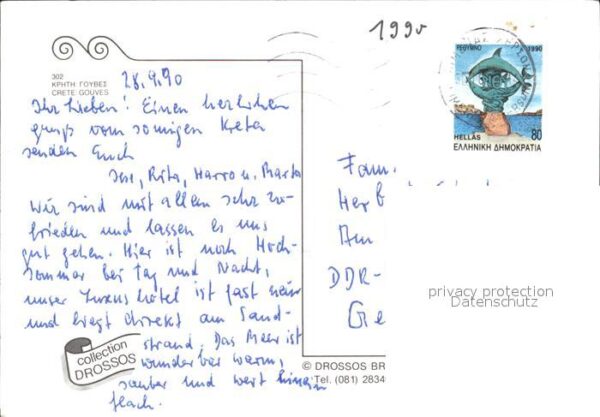 1990
302
ΚΡΗΤΗ: ΓΟΥΒΕΣ
CRETE GOUVES
28.9.90
Ihr Lieben! Einen herzlichen
gruß vom sonnigen Kreta
senden Euch
Ilse, Rita, Harro u. Marta
Wir sind mit allem sehr zu-
frieden und lassen es uns
gut gehen. Hier ist noch Hoch-
sommer bei Tag und Nacht,
unser Luxushotel ist fast neu
und liegt direkt am Sand-
strand. Das Meer ist
wunderbar warm,
sauber und weit hinein
flach.
collection
DROSSOS
ΡΕΘΥΜΝΟ 1990
HELLAS 80
ΕΛΛΗΝΙΚΗ ΔΗΜΟΚΡΑΤΙΑ
Fam.
Her
Am
DDR-
Ge
privacy protection
Datenschutz
© DROSSOS BR
Tel. (081) 2834